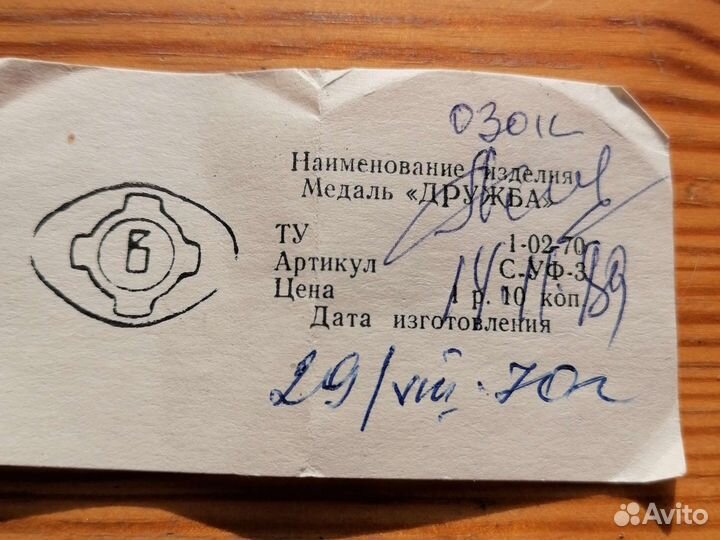 ОЗОК
Наименование изделия:
Медаль «ДРУЖБА»
В
ТУ 1-02-70
Артикул С-УФ-3
Цена 1 р. 10 коп.
Дата изготовления
29/VIII-70г
Avito